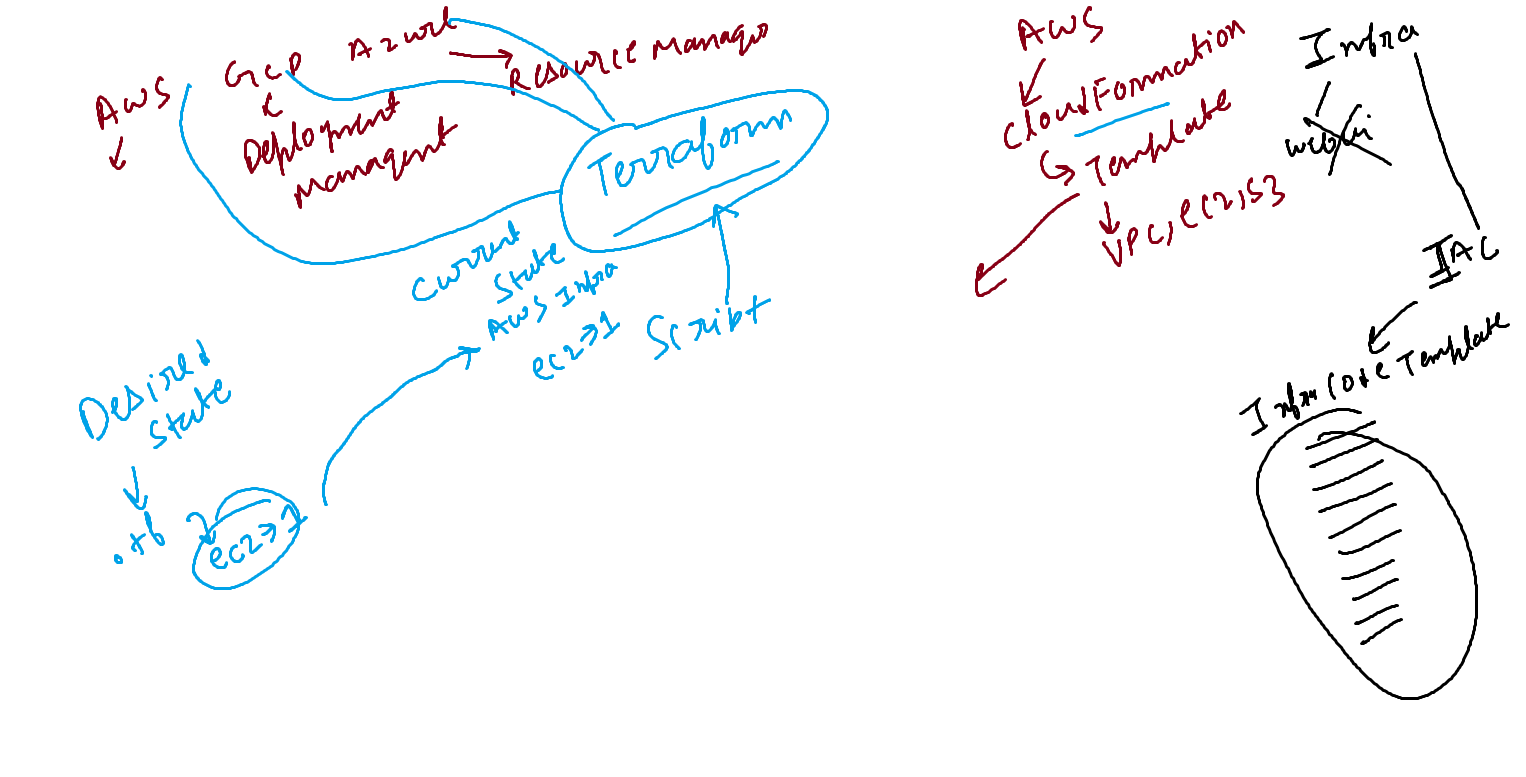 AWS
GCP
Azure
Resource Manager
Deployment
Managent
Terraform
Current
State
AWS Infra
ec2→1
Script
Desired
State
.tf
ec2→1
AWS
CloudFormation
Template
VPC, EC2, S3
Infra
IAC
Infra Code Template